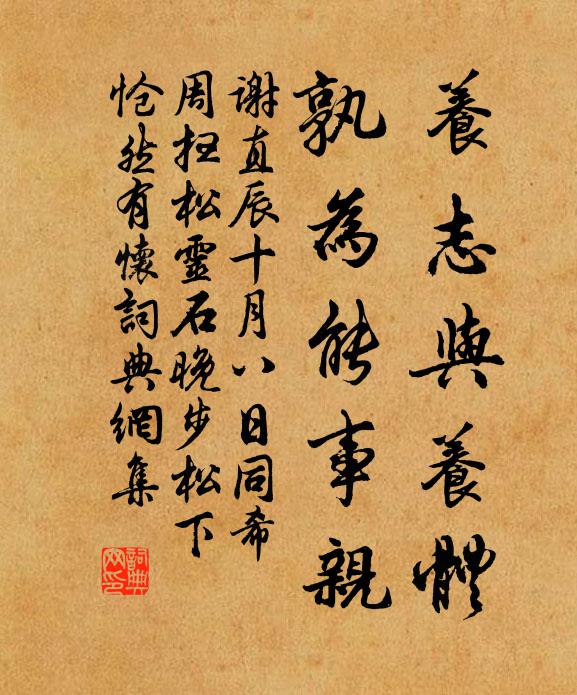 養志與養體
孰為能事親
謝直辰十月八日同希
周抂松靈石晚步松下
愴然有懷詞典網集
詞典网印